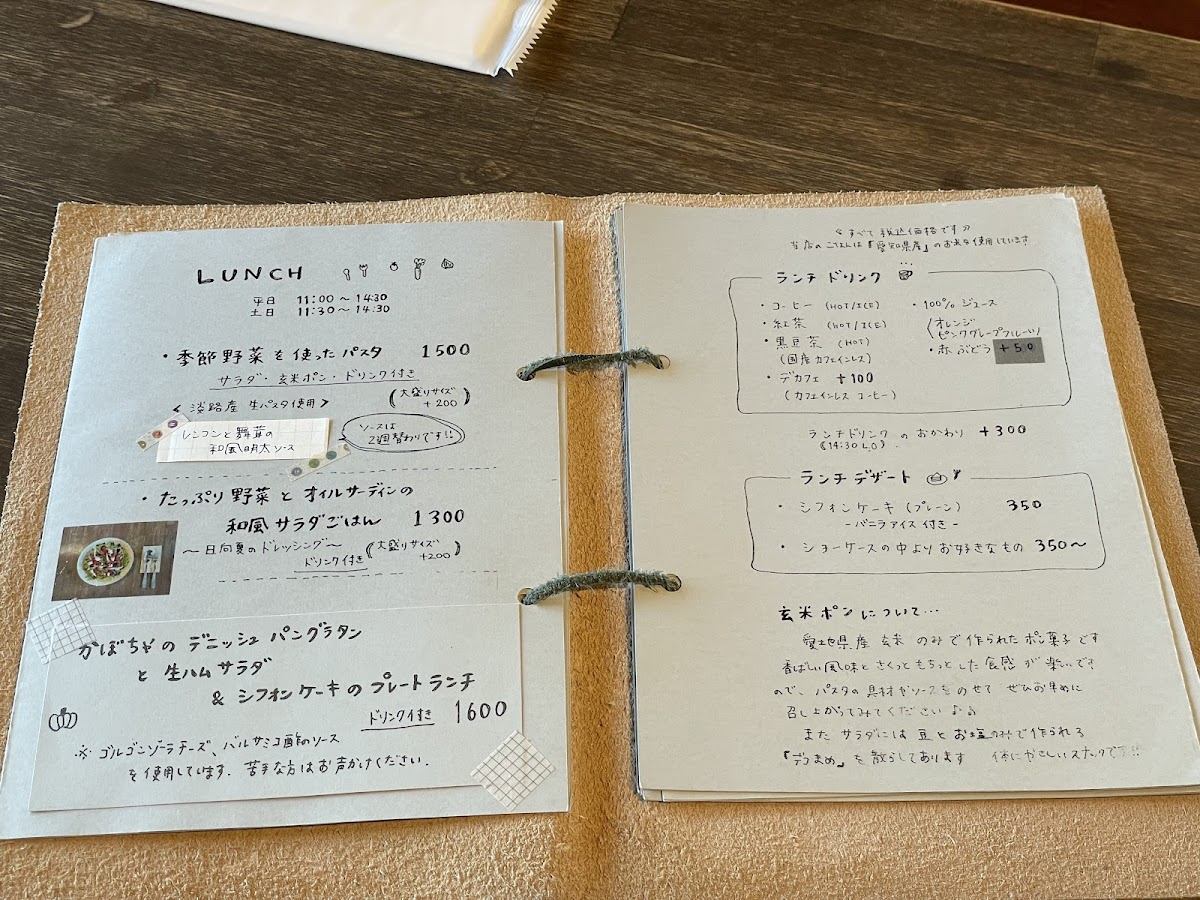 LUNCH
平日 11:00～14:30
土日 11:30～14:30
・季節野菜を使ったパスタ 1500
サラダ・玄米ポン・ドリンク付き
＜淡路産 生パスタ使用＞
(大盛りサイズ
+200)
レンコンと舞茸の
和風明太ソース
ソースは
2週替わりです!!
・たっぷり野菜とオイルサーディンの
和風サラダごはん 1300
～日向夏のドレッシング～
(大盛りサイズ
+200)
ドリンク付き
かぼちゃのデニッシュパングラタン
と生ハムサラダ
&シフォンケーキのプレートランチ
ドリンク付き 1600
※ゴルゴンゾーラチーズ、バルサミコ酢のソース
を使用しています。苦手な方はお声かけください。
《すべて税込価格です》
当店のごはんは「愛知県産」のお米を使用しています
ランチドリンク
・コーヒー (HOT/ICE)
・紅茶 (HOT/ICE)
・黒豆茶 (HOT)
(国産カフェインレス)
・デカフェ +100
(カフェインレスコーヒー)
・100%ジュース
(オレンジ
ピンクグレープフルーツ)
・赤ぶどう +50
ランチドリンクのおかわり +300
(14:30 L.O)
ランチデザート
・シフォンケーキ(プレーン) 350
-バニラアイス付き-
・ショーケースの中よりお好きなもの 350～
玄米ポンについて…
愛知県産玄米のみで作られたポン菓子です
香ばしい風味とさくっともちっとした食感が楽しめる
ので、パスタの具材やソースをのせてぜひお早めに
召し上がってみてください
またサラダには豆とお塩のみで作られる
『デコまめ』を散らしてあります 体にやさしいスナックです!!